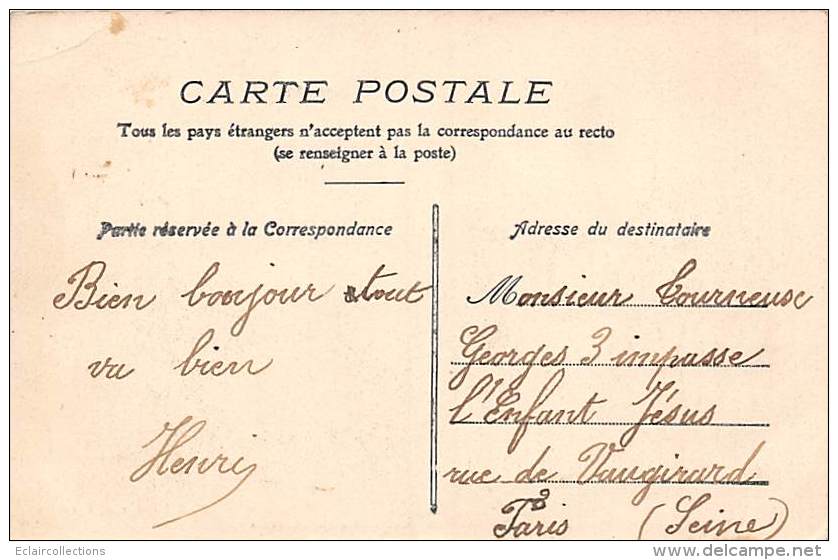 CARTE POSTALE
Tous les pays étrangers n'acceptent pas la correspondance au recto
(se renseigner à la poste)
Partie réservée à la Correspondance
Bien bonjour tout
va bien
Henri
Adresse du destinataire
Monsieur Tourneuse
Georges 3 impasse
l'Enfant Jésus
rue de Vaugirard
Paris (Seine)
Eclaircollections
http://www.delcampe.net